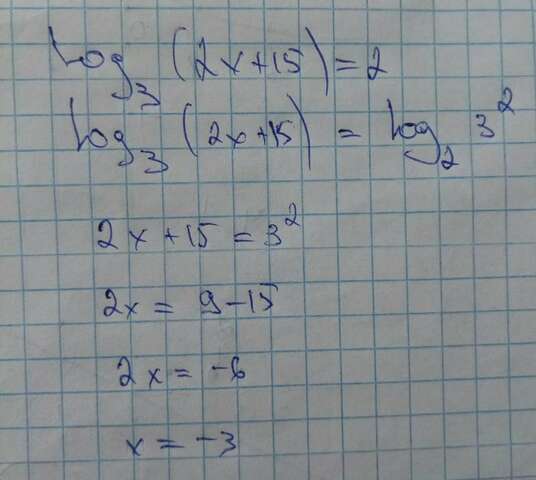 log₃ (2x+15) = 2
log₃ (2x+15) = log₂ 3²
2x+15 = 3²
2x = 9-15
2x = -6
x = -3